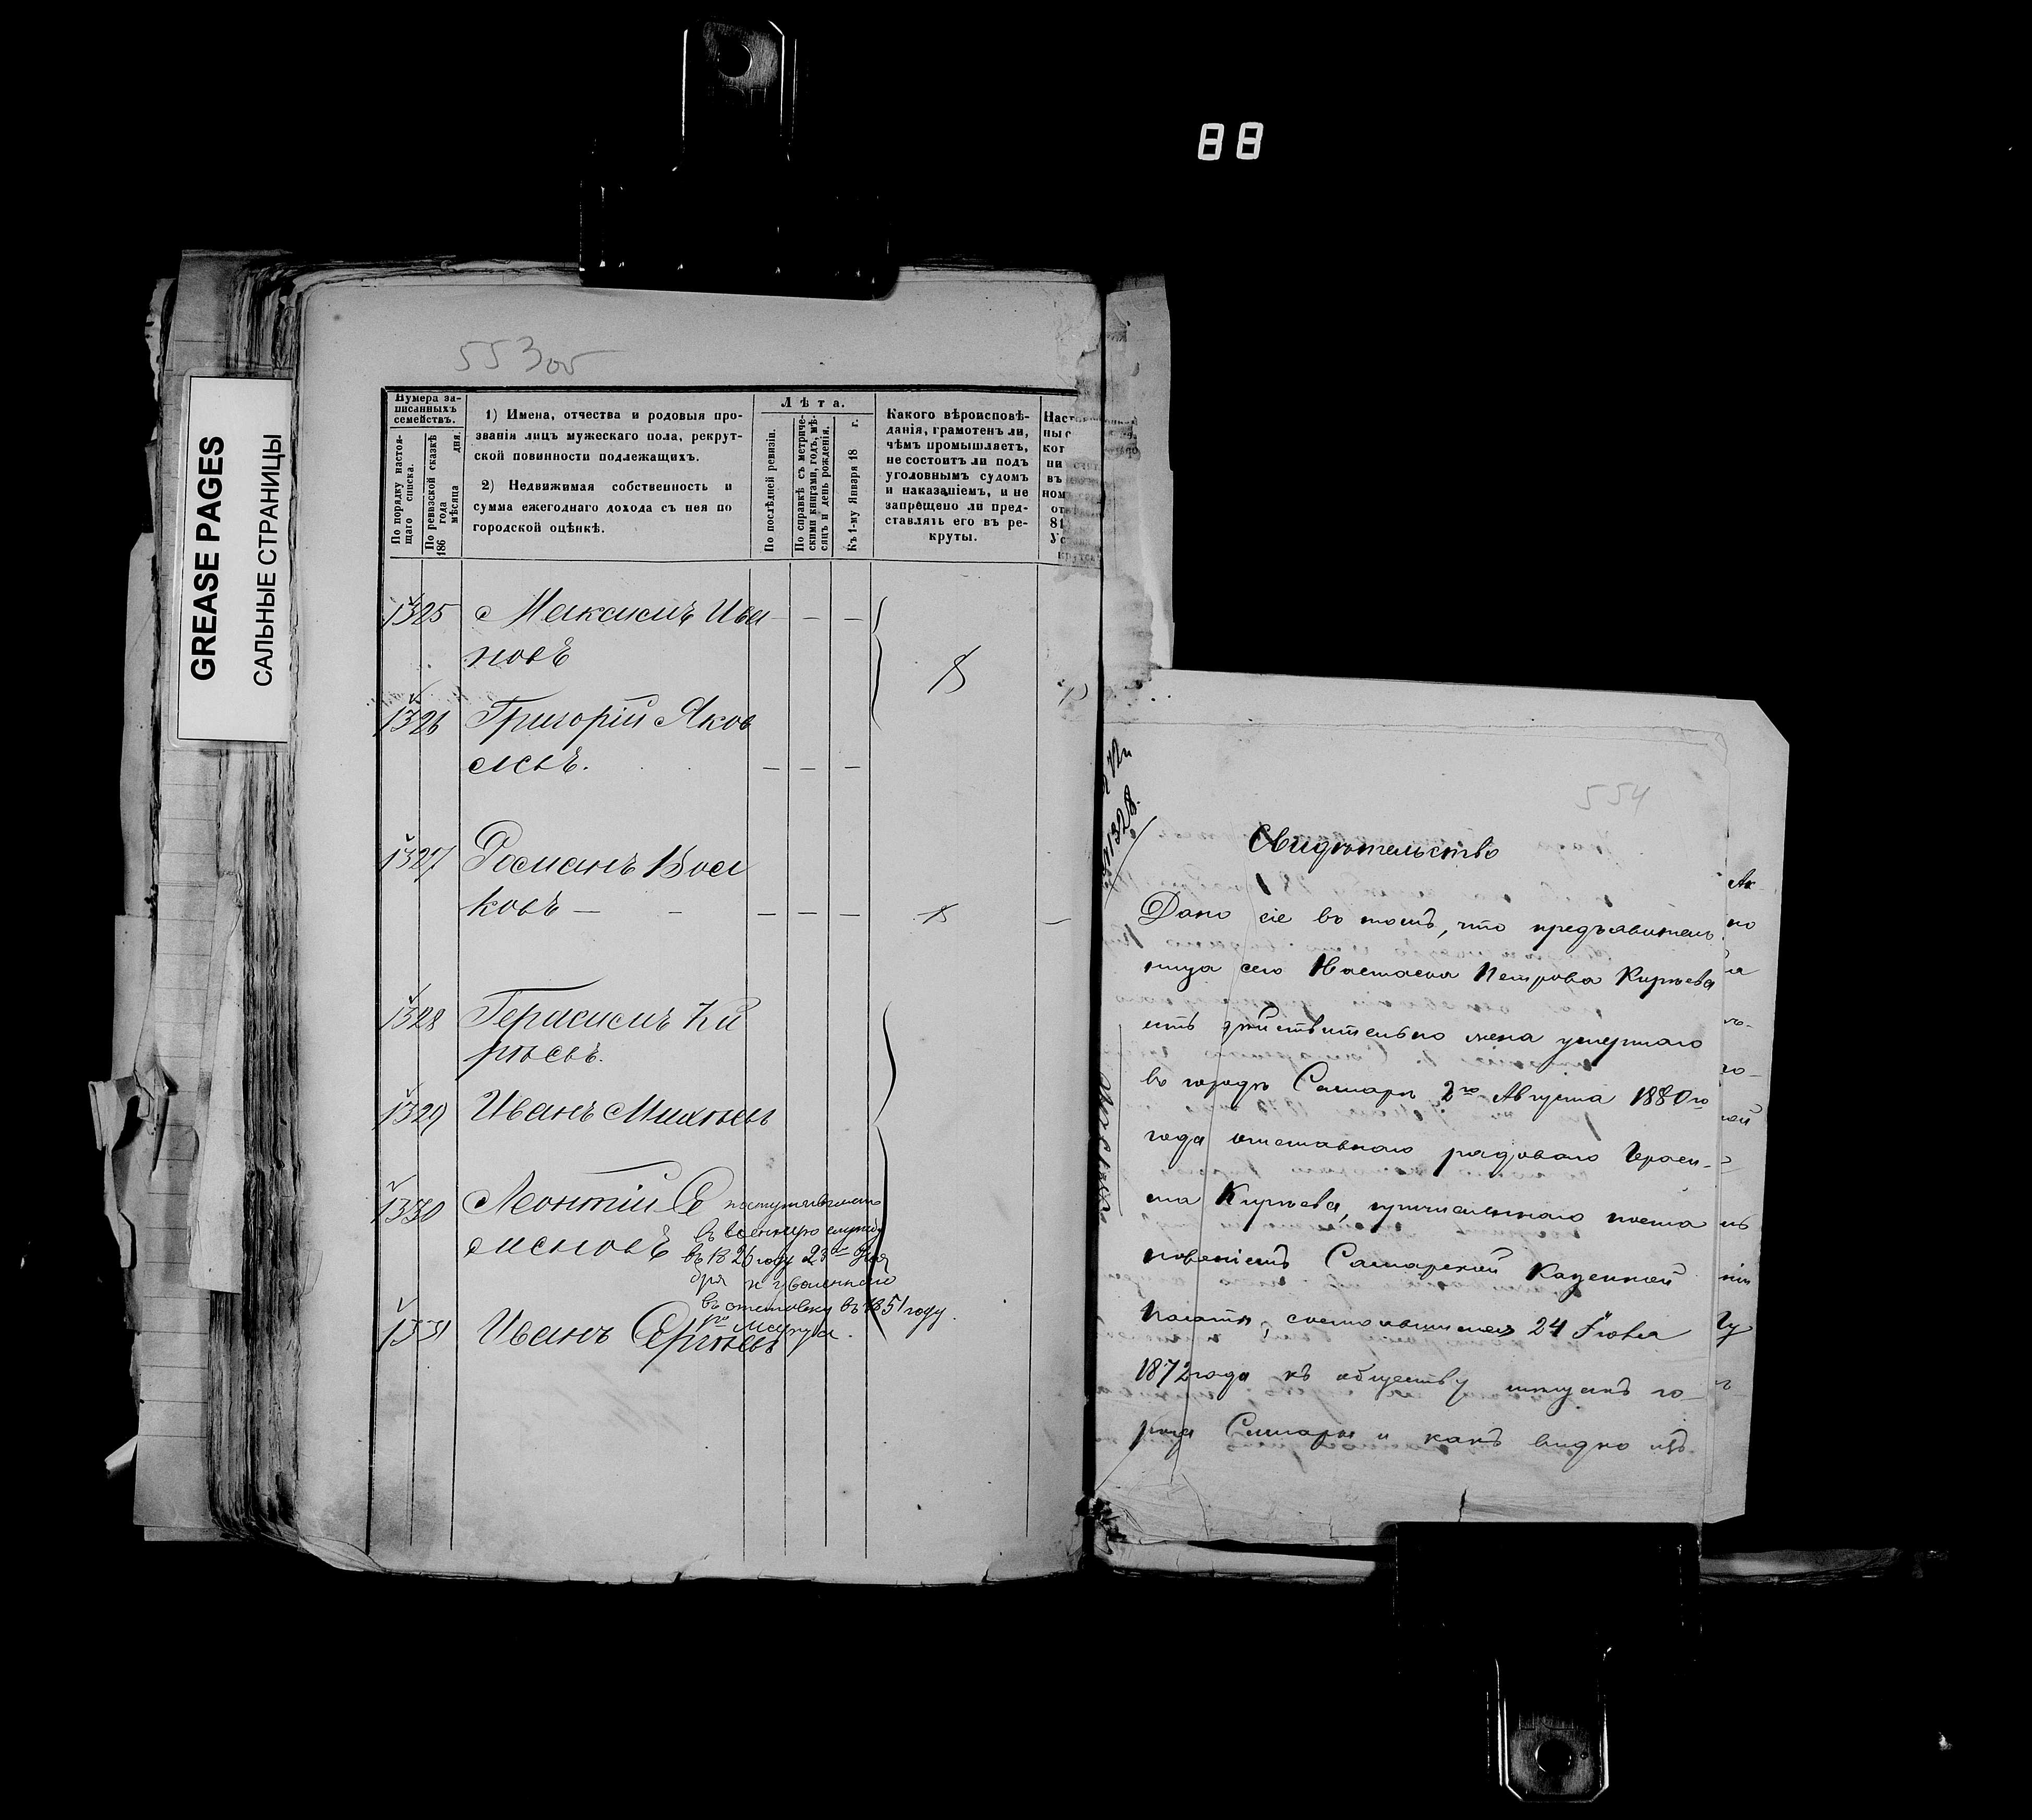 88
GREASE PAGES
САЛЬНЫЕ СТРАНИЦЫ
553об
Нумера за-
писанныхъ
семействъ.
По порядку настоя-
щаго списка.
По ревизской сказкѣ
186 года мѣсяца дня.
1) Имена, отчества и родовыя про-
званія лицъ мужескаго пола, рекрут-
ской повинности подлежащихъ.
2) Недвижимая собственность и
сумма ежегоднаго дохода съ нея по
городской оцѣнкѣ.
Лѣта.
По послѣдней ревизіи.
По справкѣ съ метриче-
скими книгами, годъ, мѣ-
сяцъ и день рожденія.
Къ 1-му Января 18 г.
Какого вѣроисповѣ-
данія, грамотенъ ли,
чѣмъ промышляетъ,
не состоитъ ли подъ
уголовнымъ судомъ
и наказаніемъ, и не
запрещено ли пред-
ставлять его въ ре-
круты.
1325 Максимъ Ива
новъ
1326 Григорій Яков
левъ.
1327 Романъ Вол
ковъ —
1328 Герасимъ Ки
рѣевъ.
1329 Иванъ Михѣевъ
1330 Леонтій Се
меновъ
поступившаго
въ военную службу
въ 1826 году 23 Дека
бря и уволеннаго
въ отставку въ 1851 году
1331 Иванъ Сергѣевъ
554
1328.
Свидѣтельство
Дано сіе въ томъ, что предъявитель
ница сего Настасья Петрова Кирѣева
есть дѣйствительно жена умершаго
въ городѣ Самарѣ 2го Августа 1880 го
года отставнаго рядоваго Гераси-
ма Кирѣева, причисленнаго поста
новленіемъ Самарской Казенной
Палаты, состоявшимся 24 Іюля
1872 года къ обществу мѣщанъ го-
рода Самары и какъ видно изъ